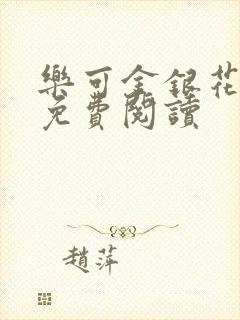 樂可金銀花
免費閱讀
趙萍